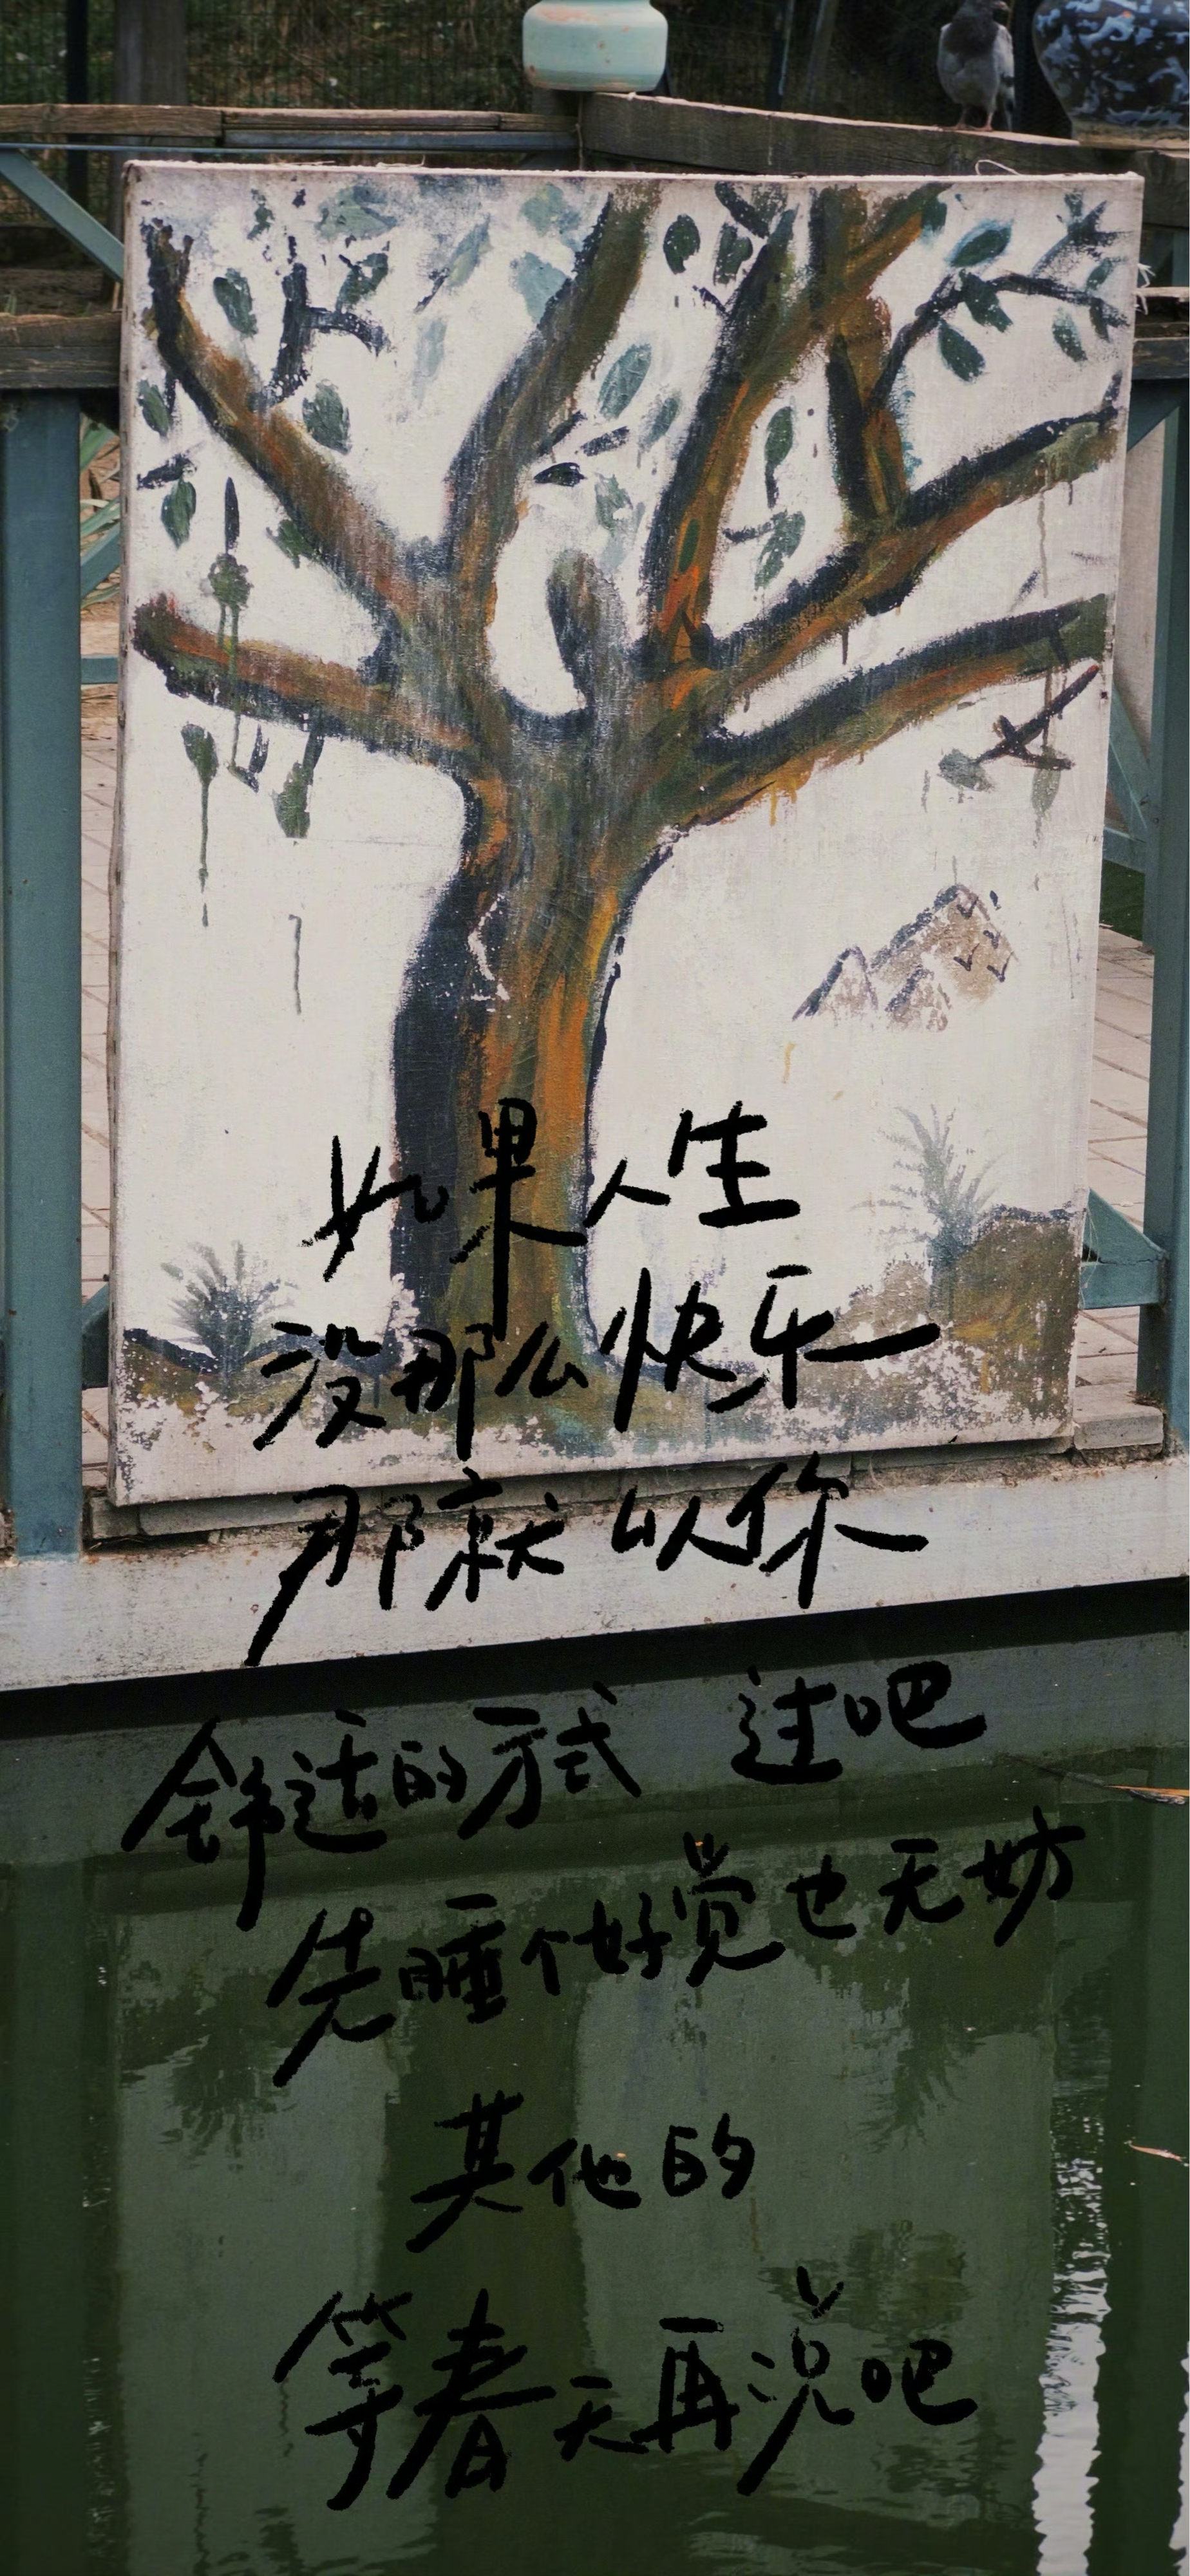 如果人生
没那么快乐
那就以你
舒适的方式 过吧
先睡个好觉也无妨
其他的
等春天再说吧